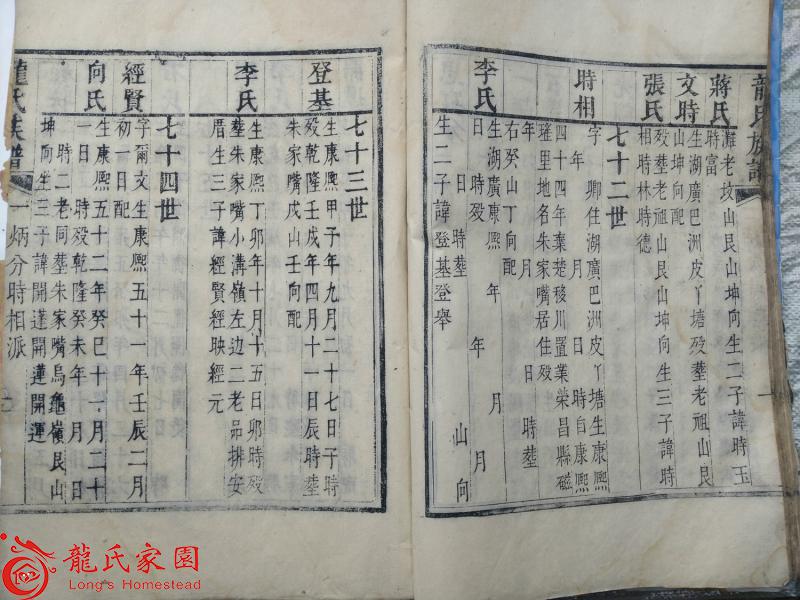 龍氏族譜
蔣氏
灘老坟山艮山坤向生二子諱時玉
時富
文時
生湖廣巴洲皮丫塘殁塟老祖山艮
山坤向配
張氏
殁塟老祖山艮山坤向生三子諱時
相時林時德
七十二世
時相
字 卿住湖廣巴洲皮丫塘生康熙
年 月 日 時自康熙
四十四年棄楚移川置業榮昌縣磁
窰里地名朱家嘴居住殁
年 月 日 時塟
右癸山丁向配
李氏
生湖廣康熙 年 月
日 時殁 年 月
日 時塟 山 向
生二子諱登基登舉
七十三世
登基
生康熙甲子年九月二十七日子時
殁乾隆壬戌年四月十一日辰時塟
朱家嘴戌山壬向配
李氏
生康熙丁卯年十月十五日卯時殁
塟朱家嘴小溝嶺左边二老品排安
厝生三子諱經賢經映經元
七十四世
經賢
字爾文生康熙五十一年壬辰二月
初一日配
向氏
生康熙五十二年癸巳十一月二十
一日 時殁乾隆癸未年十月 日
時二老同塟朱家嘴烏龜嶺艮山
坤向生三子諱開蓬開蓮開運
龍氏族譜 一炳分時相派
龍氏家園
Long's Homestead